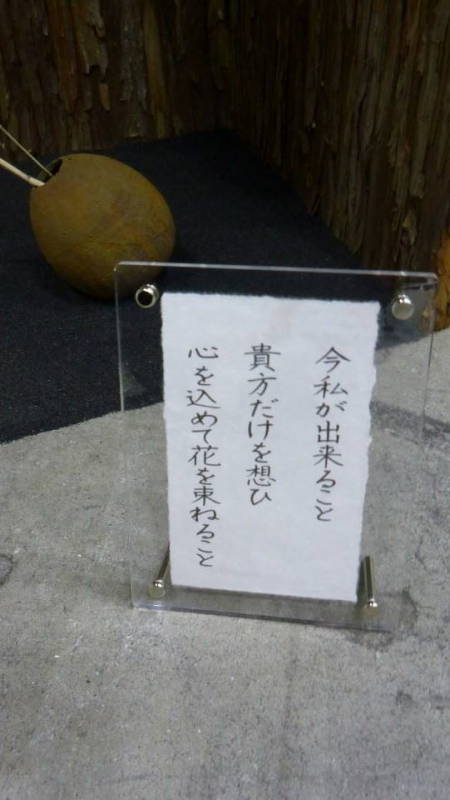 今私が出来ること
貴方だけを想ひ
心を込めて花を束ねること